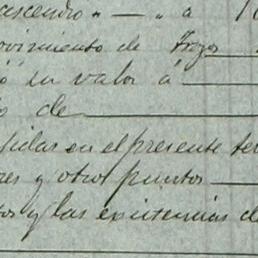 ascendro " — " a 10
ovimiento de Trozos
o en valor á
o de
jidas en el presente te
res y otros puntos
tos y las existencias d